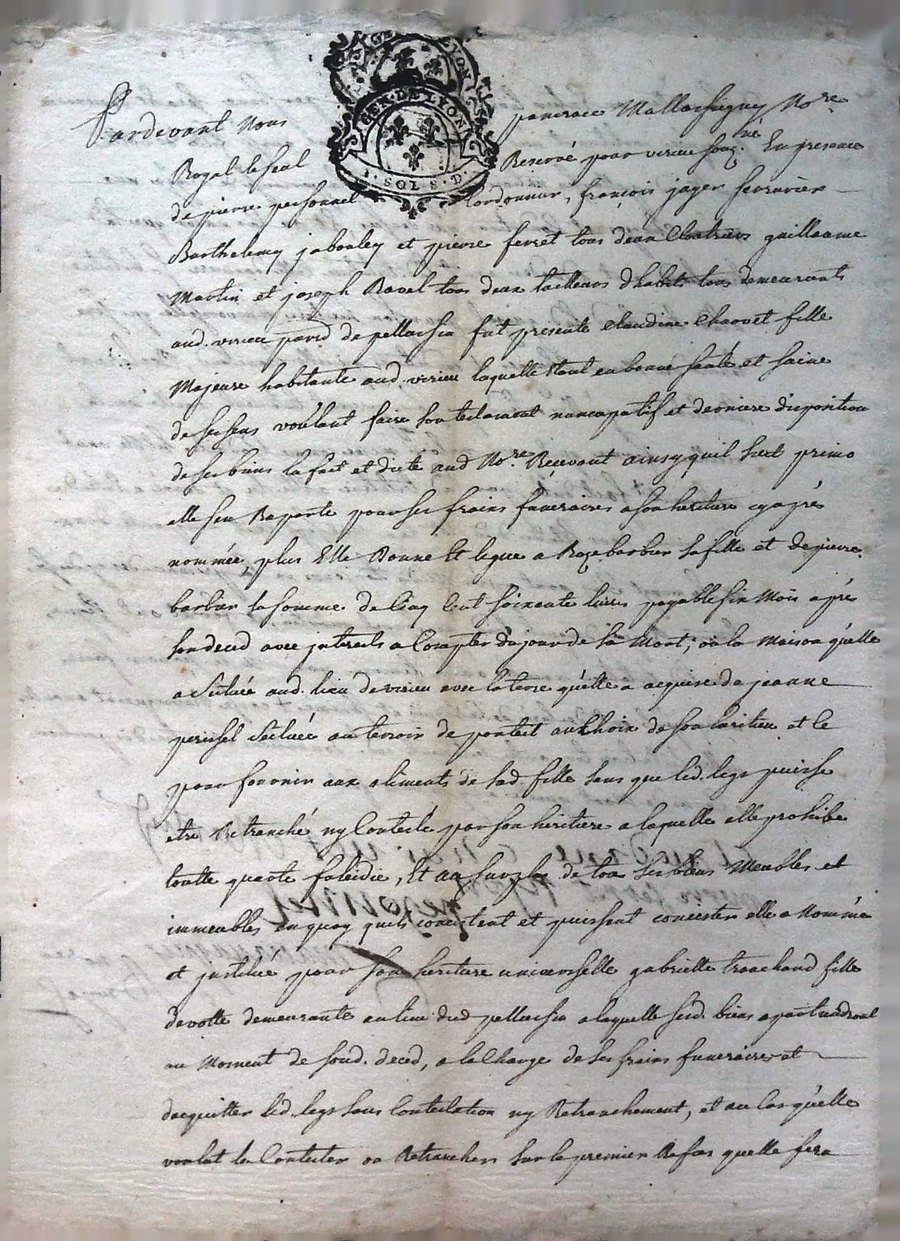 GEN. DE LYON
1. SOL 8. D.
Pardevant Nous pancrace Mallassagny No.re
Royal le seal Reservé pour virieu souz.né En presence
de pierre personnel Cordonnier, françois jager serrurier
Barthelemy jabouley et pierre ferret tous deux guillaume
Martin et joseph Ravel tous deux tailleurs d'habits tous demeurants
aud. virieu de pellussin fut presente claudine Chauvet fille
Majeure habitante aud. virieu laquelle étant en bonne santé et saine
de ses sens voulant faire son testament nuncupatif et derniere disposition
de ses biens la fait et dicté aud No.re Recevant ainsy quil suit primo
elle sen Raporte pour ses frais funeraires a son heritiere cy aprés
nommée, plus Elle Donne Et legue a Roze barbier sa fille et de pierre
barbier la somme de Cinq Cent soixante livres payable six Mois aprés
son deced avec interests a Compter du jour de sa Mort, ou la Maison quelle
a scituée aud. lieu de virieu avec la terre quelle a acquise de jeanne
scituée au terroir de au Choix de son heritiere et ce
pour fournir aux aliments de sad fille sans que led. legs puisse
etre Retranché ny Contesté par son heritiere a laquelle elle prohibe
toutte quarte falcidie, Et au surplus de tous ses biens Meubles et
immeubles en quoy quils consistent et puissent concister elle a Nommée
et instituée pour son heritiere universelle gabrielle tranchand fille
devotte demeurante au lieu dud pellussin a laquelle sesd. biens apartiendront
au Moment de sond. deced, a la Charge de ses frais funeraires et
dacquitter led. legs sans Contestation ny Retranchement, et au Cas quelle
voulut le Contester ou Retrancher sur le premier Refus quelle fera